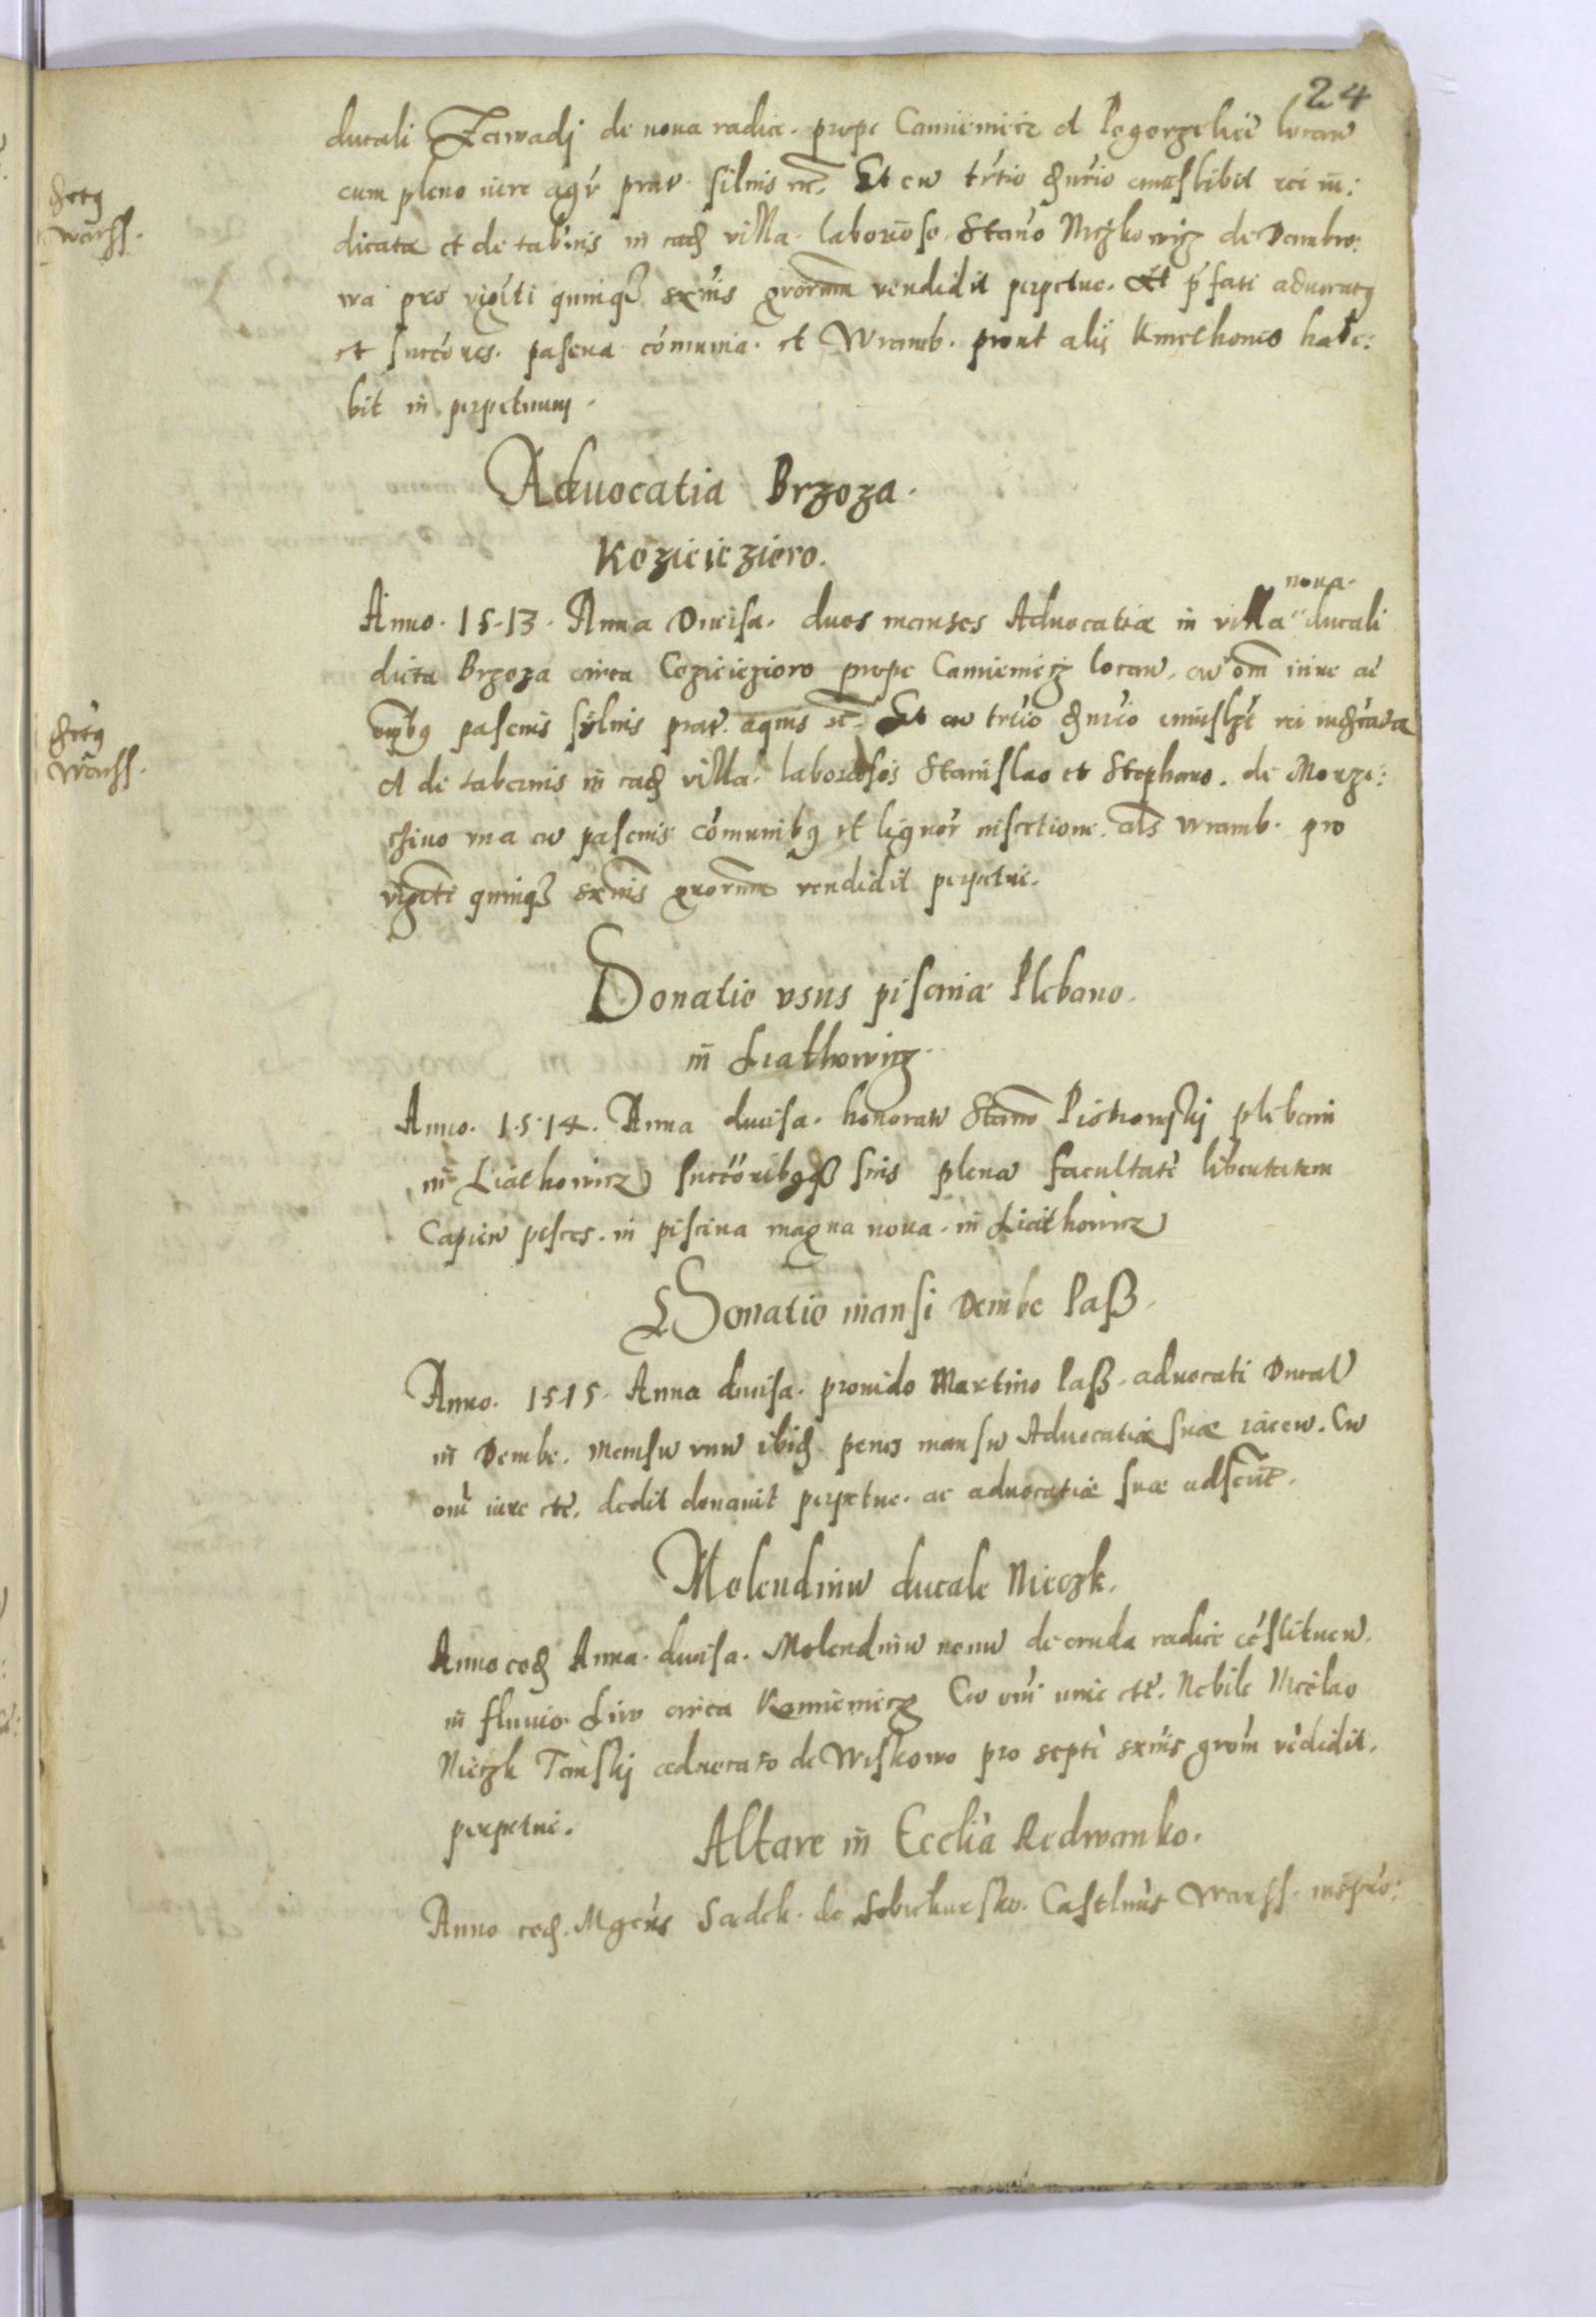 24
ducali Zawadj de noua radice. prope Camiemiecz et Pogorzelicz locan
cum pleno iure agr prat. siluis etc. Et cu trtio dnrio emestibil rei iu:
dicata et de tabrnis in ead villa. laborioso Stano Mczkowicz de Dambro:
wa pro viginti quinq sexnis grorum vendidit perpetue. Et pfati aduocatq
et succores. pascua comunia. et Wramb. prout alij Kmethones habe:
bit in perpetuum.
dretq
warss.
Aduocatia Brzoza.
Kozieieziero.
noua.
Anno. 1513. Anna Ducisa. duos mansos Aduocatiæ in villa ducali
dicta Brzoza circa Cozieiezioro prope Camiemiecz locan. cu om iure ac
ombq pascuis syluis prat. aquis etc. Et cu trtio dnrio rei iudicata
et de tabernis in ead villa. laboriosis Stanislao et Stephano. de Morze:
chiuo vna cu pascuis comunibq et lignor als wramb. pro
viginti quinq sexnis grorum vendidit perpetue.
dretq
Warss.
Donatio vsus piscinæ Plebano.
in Liathowicz.
Anno. 1514. Anna ducisa. honoratu Stano Piotrowskj plebani
in Liathowicz succoribqß suis plena facultate libertatem
Capien pisces. in piscina magna noua. in Liathowicz
Donatio mansi Dembe Paß.
Anno. 1515. Anna ducisa. prouido Martino Paß. aduocati Ducal
in Dembe. Mansu vnu ibid. penes mansu Aduocatiæ suæ iacen. Cu
omi iure etc. dedit donauit perpetue. ac aduocatiæ suæ
Molendinu ducale Nieczk.
Anno eod Anna. ducisa. Molendinu nouu de cruda radice constituen.
in fluuio. Liw circa Kamiemiecz Cu omi iure etc. Nobile Nicolao
Nieczk Tanskj aduocato de Wiskowo pro septe sexnis grom vedidit.
perpetue.
Altare in Ecclia Radwanko.
Anno eod. Mgcus Sadek. de Sobiekursko. Castlnus Warss.